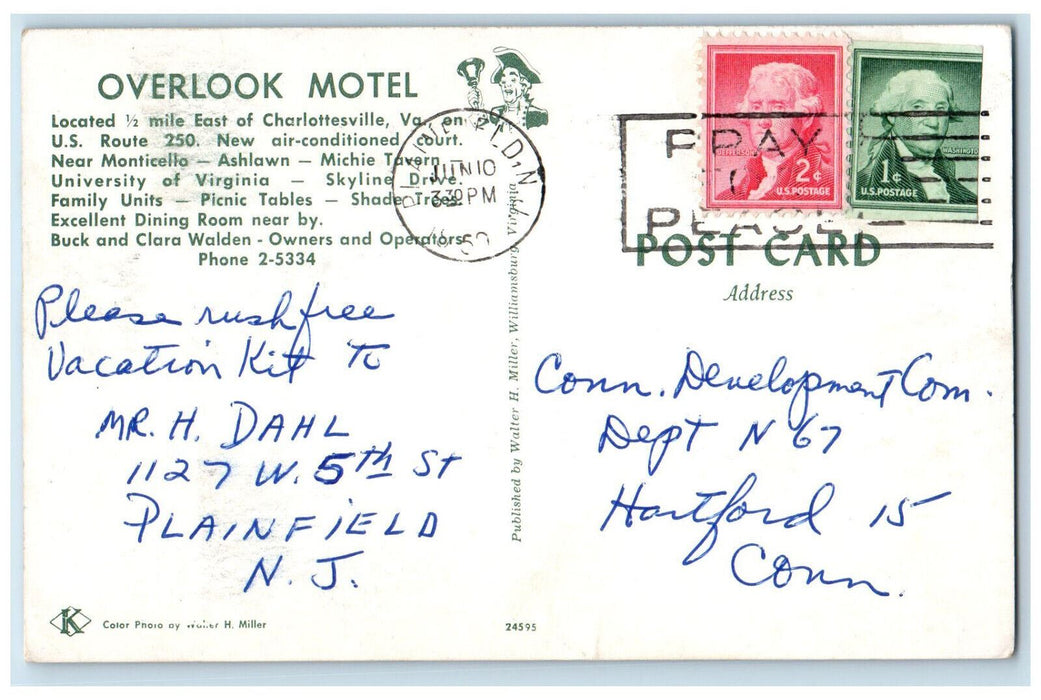 OVERLOOK MOTEL
Located ½ mile East of Charlottesville, Va., on
U.S. Route 250. New air-conditioned court.
Near Monticello — Ashlawn — Michie Tavern
University of Virginia — Skyline Drive.
Family Units — Picnic Tables — Shade Trees
Excellent Dining Room near by.
Buck and Clara Walden - Owners and Operators
Phone 2-5334
Please rush free
Vacation Kit To
MR. H. DAHL
1127 W. 5th St
PLAINFIELD
N. J.
K
Color Photo by Walter H. Miller
24595
Published by Walter H. Miller, Williamsburg, Virginia
JUN 10
330 PM
PRAY
PEACE
JEFFERSON
2¢
U.S. POSTAGE
WASHINGTON
1¢
U.S. POSTAGE
POST CARD
Address
Conn. Development Com.
Dept N 67
Hartford 15
Conn.